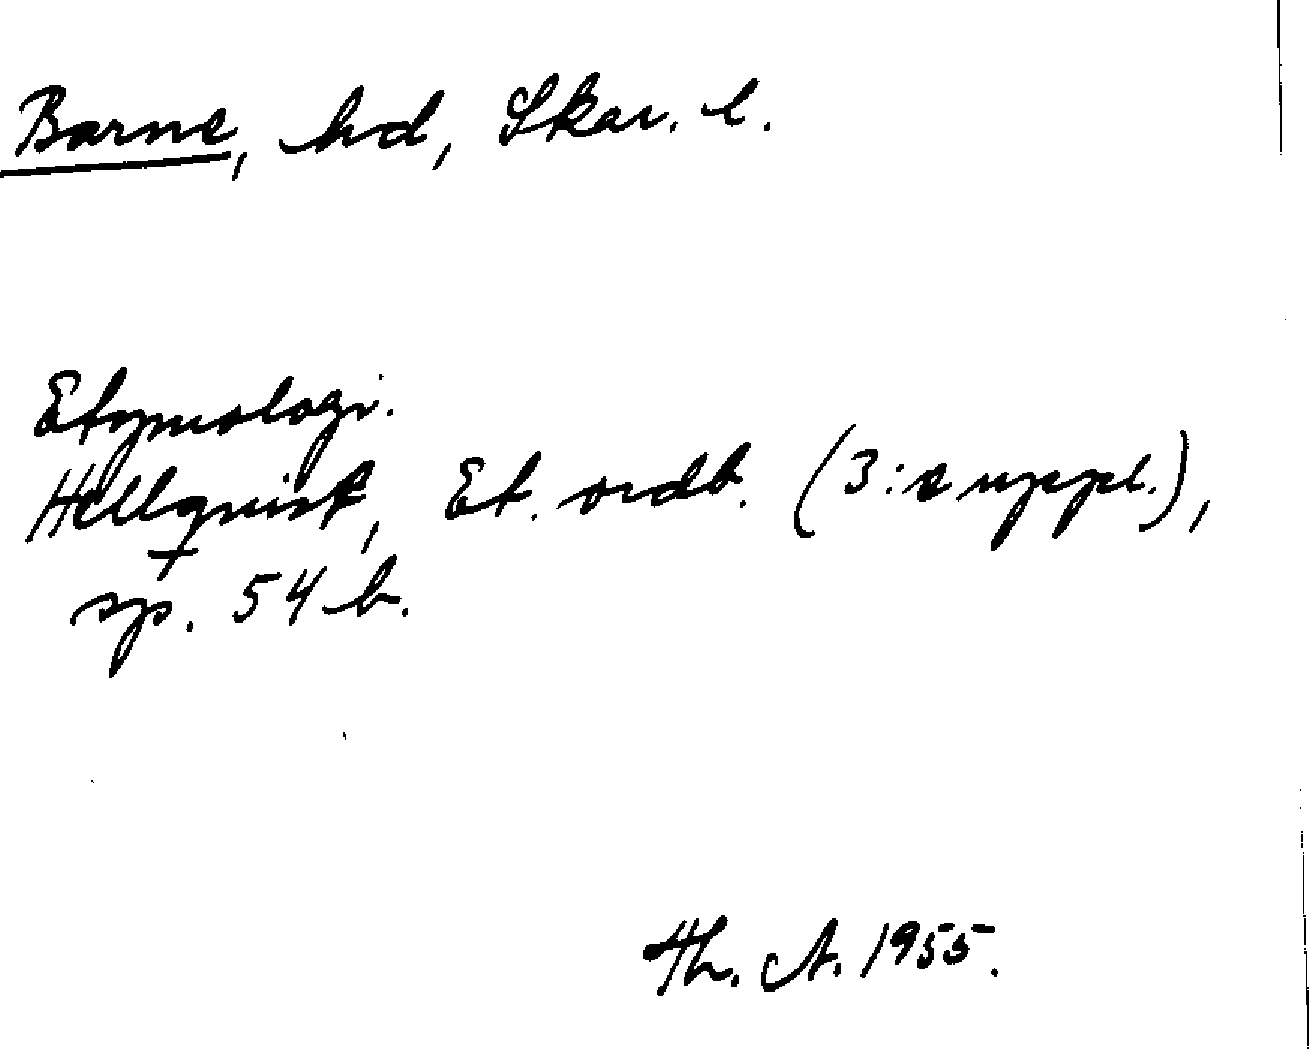 Barne, hd, Skar. l.
Etymologi.
Hellquist, Et. ordb. (3:e uppl.),
sp. 54 b.
Th. A. 1955.